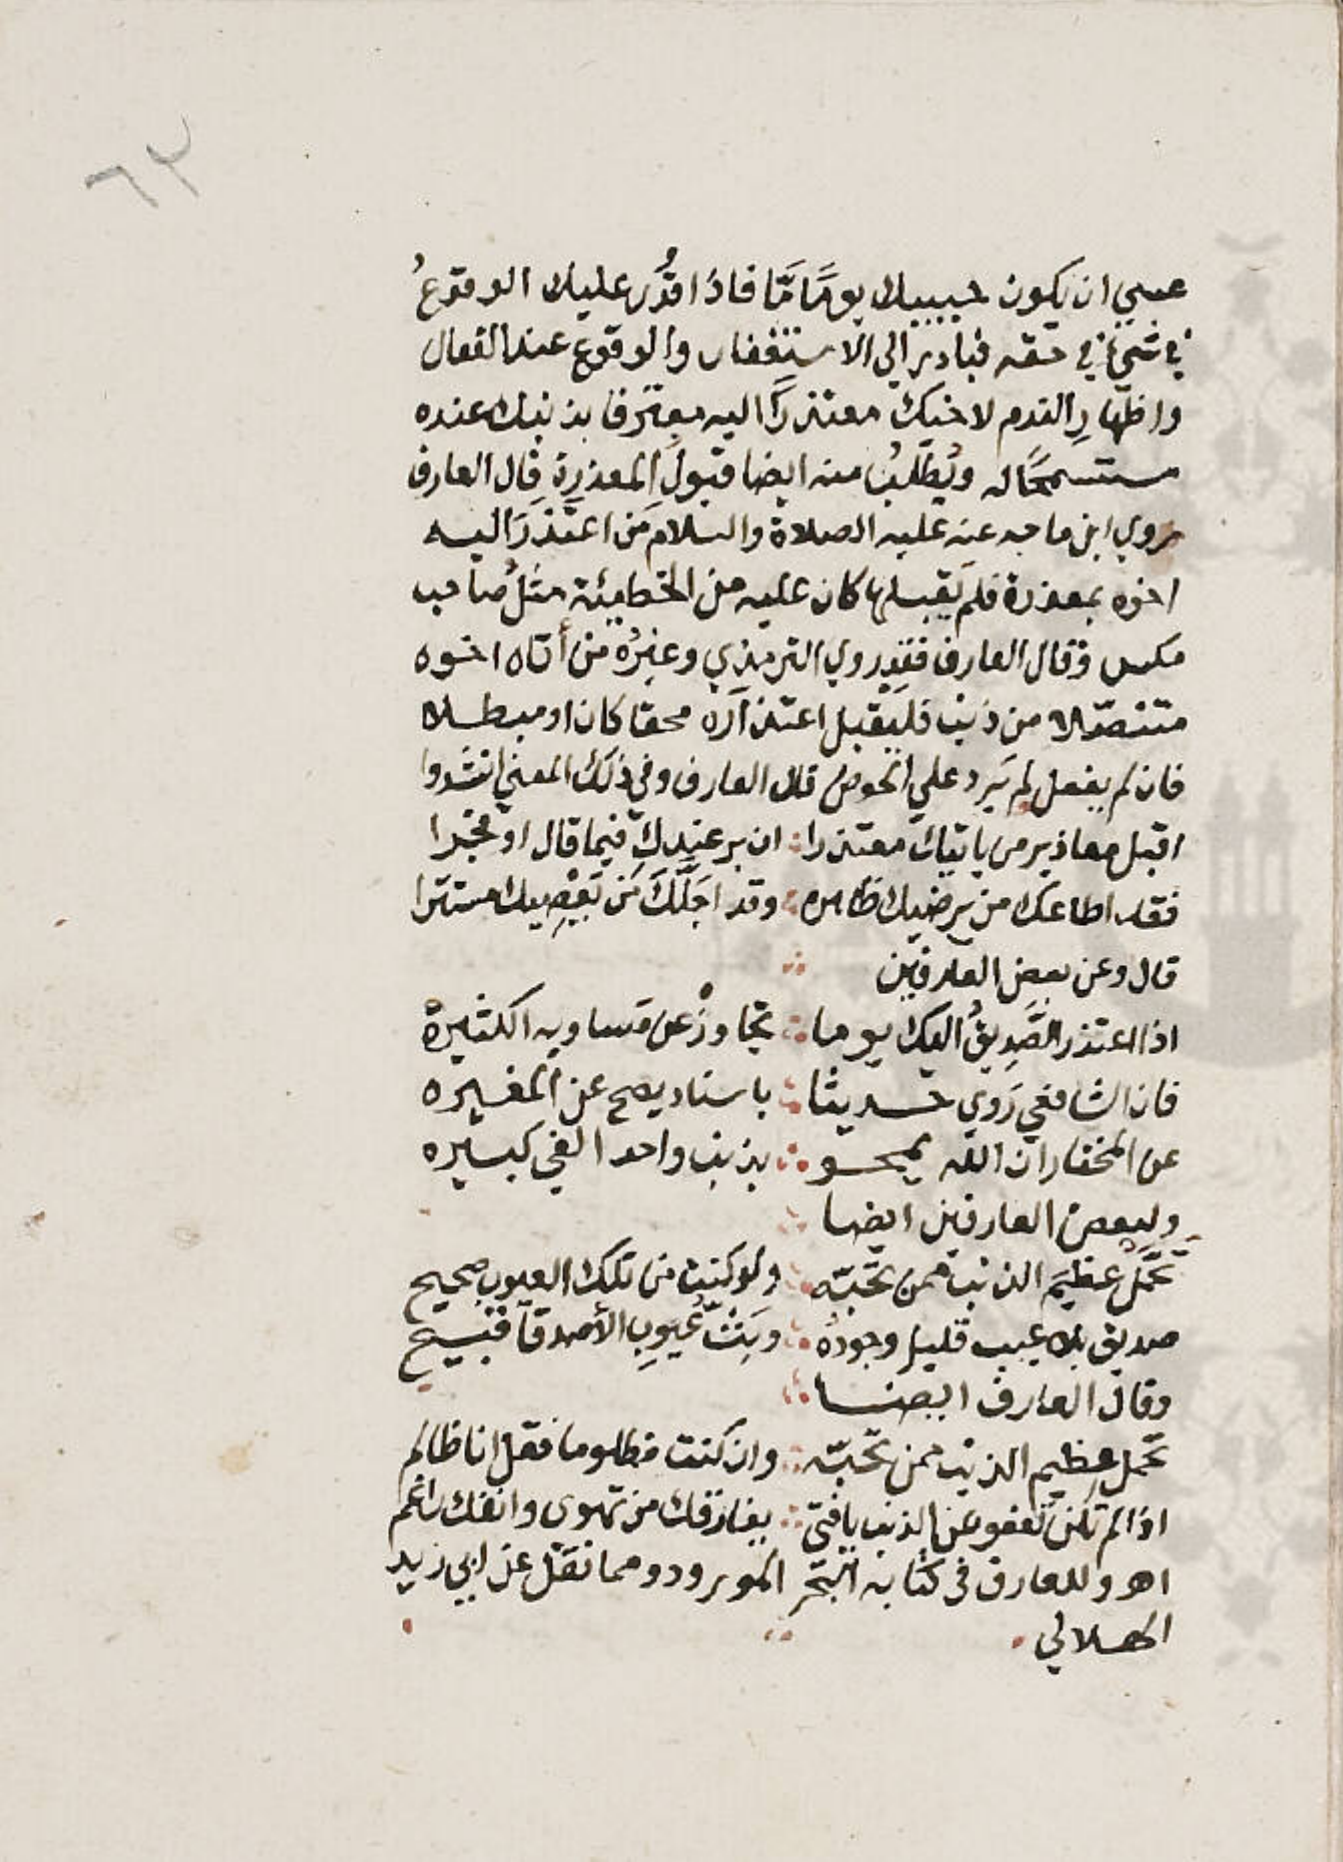 ٦٢
عسى ان يكون حبيبك يومًا مَّا فاذا قُدِّر عليك الوقوعُ
في شيء في حقه فبادر الي الاستغفار والوقوع عند النعال
واظهارِ الندم لاخيك معتذرًا اليه معترفا بذنبك عنده
مستسمحًا له وتُطلَبُ منه ايضا قبولُ المعذرةِ قال العارف
روي ابن ماجه عنه عليه الصلاة والسلام مَن اعتذَرَ اليه
اخوه بمعذرة فلم يَقبلها كان عليه من الخطيئة مثلُ صاحب
مكس وقال العارف فقد روي الترمذي وغيرُه من أتاه اخوه
متنصّلا من ذنب فليقبل اعتذاره محقا كان او مبطلا
فان لم يفعل لم يَرِد علي الحوض قال العارف وفي ذلك المعني انشدوا
اقبل معاذير من ياتيك معتذرا ان بر عندك فيما قال او فجرا
فقد اطاعك من يرضيك ظاهره وقد اجَلَّكَ مَن يَعْصِيك مستترا
قال وعن بعض العارفين
اذا اعتذر الصَّدِيقُ اليك يوما تجاوزْ عن مَساويه الكثيرة
فان الشافعي رَوي حديثا باسناد يصح عن المغيره
عن المختار ان الله يمحو بذنب واحد الفي كبيره
ولبعض العارفين ايضا
تحَمَّل عظيمَ الذنب ممن تحبّه ولو كنت من تلك العيوب صحيح
صديق بلا عيب قليل وجودُه وبَثُّ عُيوبِ الأصدقا قبيح
وقال العارف ايضا
تحمل عظيم الذنب ممن تحبّه وان كنت مظلوما فقل انا ظالم
اذا لم تكن تعفو عن الذنب يا فتي يفارقك من تهوى وانفك راغم
اهـ وللعارف في كتابه البحر المورود ومما نقل عن ابي زيد
الهلالي